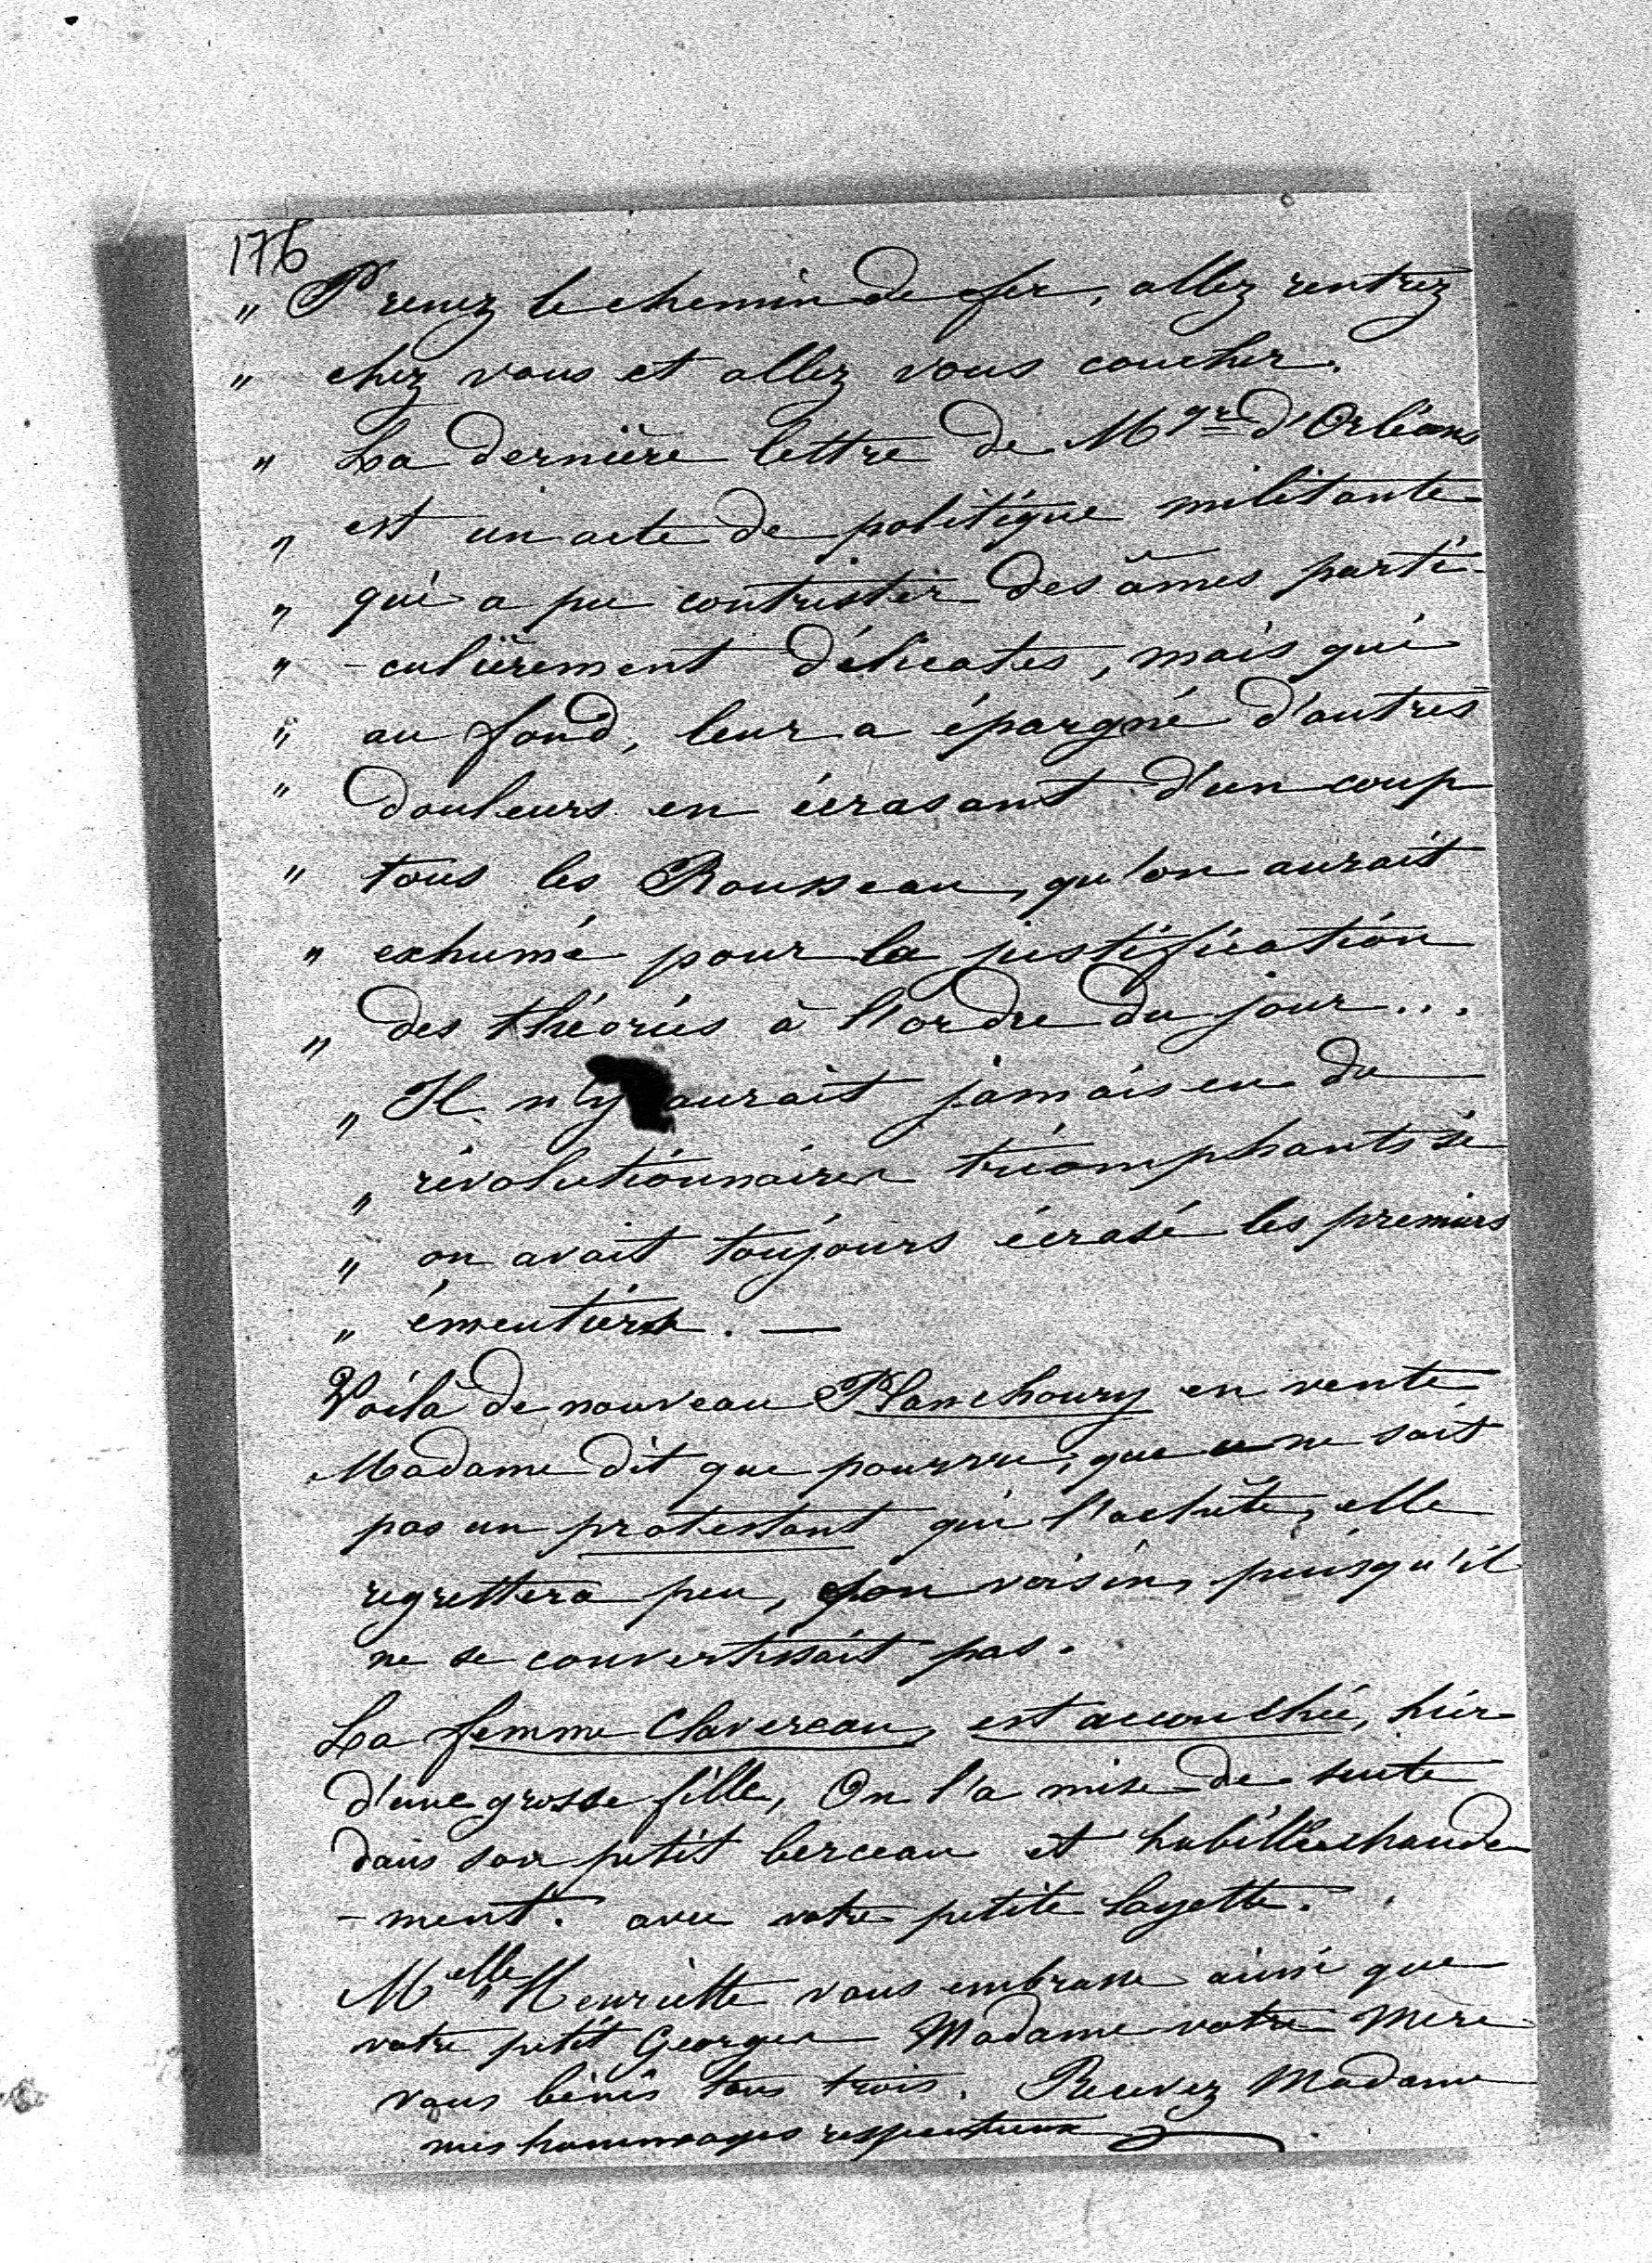 176
" Prenez le chemin de fer, allez rentrez
" chez vous et allez vous coucher.
" La dernière lettre de Mgr d'Orléans
" est un acte de politique militante
" qui a pu contrister des âmes parti-
" -culièrement délicates, mais qui
" au fond, leur a épargné d'autres
" douleurs en écrasant d'un coup
" tous les Rousseau, qu'on aurait
" exhumé pour la justification
" des théories à l'ordre du jour...
" Il n'y aurait jamais eu de
" révolutionnaires triomphants si
" on avait toujours écrasé les premiers
" émeutiers. —
Voilà de nouveau Planchoury en vente
Madame dit que pourvu, que ce ne soit
pas un protestant qui l'achète, elle
regrettera peu, son voisin, puisqu'il
ne se convertissait pas.
La femme Clavereau, est accouchée, hier
d'une grosse fille, On l'a mise de suite
dans son petit berceau et habillée chaude
-ment. avec votre petite layette.
Melle Henriette vous embrasse ainsi que
votre petit Georges Madame votre Mère
vous bénis tous trois. Recevez Madame
mes hommages respectueux